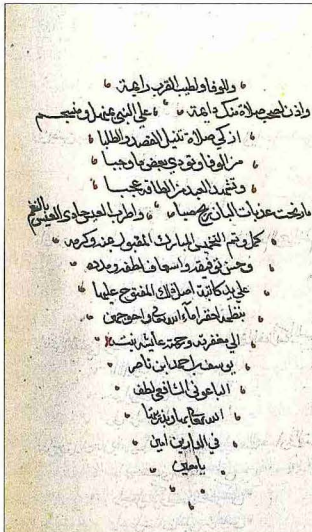 والوفا ولطيب القرب دايمة
واذن لسحب صلاة منك دايمة على النبي بمنهل ومنسجم
ازكى صلاة تنيل القصد والطلبا
من الوفا وتودي بعض ما وجبا
ما رنحت عذبات البان ريح صبا واطرب العيس حادي العيس بالنغم
كمل وتم التخميس المبارك المقبول عند وكرمه
وحسن توفيقه واسعاف لطفه ومدده
على يد كاتبة اصل المفتوح عليها
بنظمه احقر اماء الله تعالى واحوجهن
الى مغفرته ورحمته عائشة بنت
يوسف بن احمد ابن ناصر
الباعوني الشافعي لطف
الله تعالى بها وبذريتها
في الدارين امين
يا معين